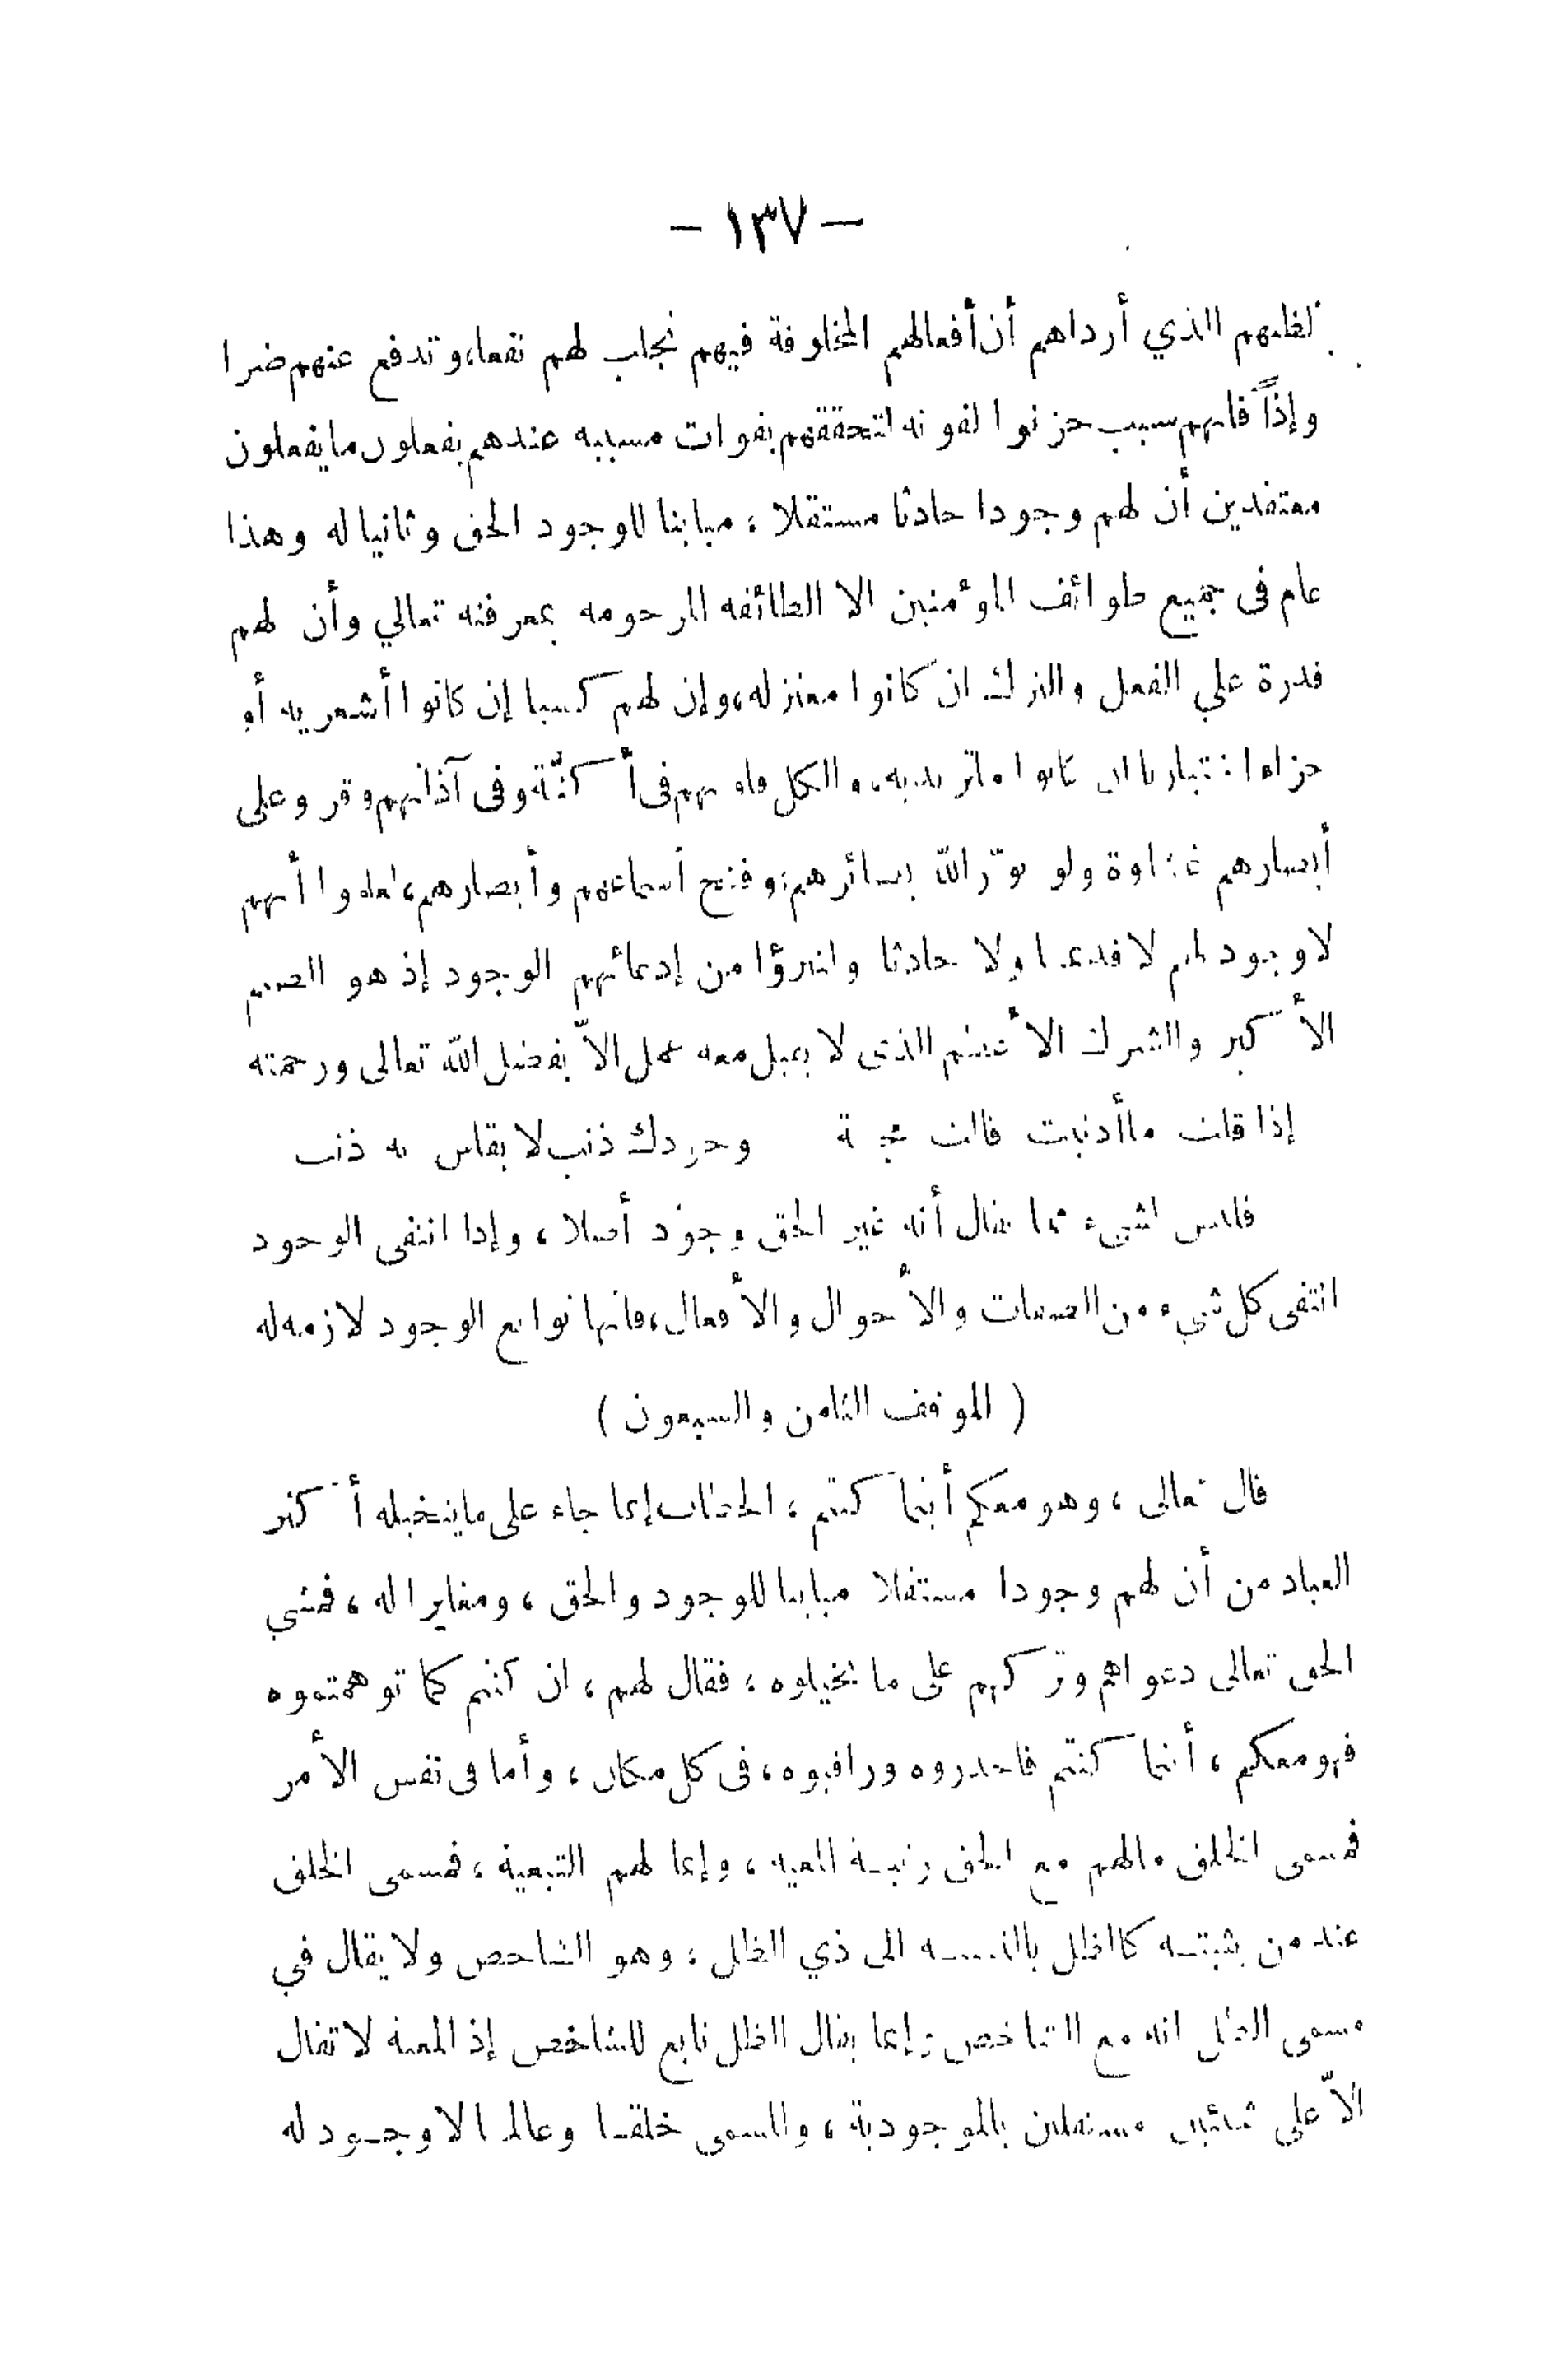 — ١٣٧ —
لظنهم الذي أرداهم أن أفعالهم المخلوقة فيهم تجلب لهم نفعا، وتدفع عنهم ضرا
وإذاً فاتهم سبب حزنوا لفوته لتحققهم بفوات مسببه عندهم يفعلون ما يفعلون
معتقدين أن لهم وجودا حادثا مستقلا ، مباينا للوجود الحق وثانيا له وهذا
عام فى جميع طوائف المؤمنين الا الطائفه المرحومه بمعرفته تعالي وأن لهم
قدرة علي الفعل والترك ان كانوا معتزله، وإن لهم كسبا إن كانوا أشعريه أو
جزاء اختياريا ان كانوا ماتريديه، والكل قلوبهم فى أكنّة وفى آذانهم وقر وعلى
أبصارهم غشاوة ولو نوّر الله بصائرهم، وفتح أسماعهم وأبصارهم، لعلموا أنهم
لا وجود لهم لا قديما ولا حادثا وانبرؤا من إدعائهم الوجود إذ هو الصنم
الأكبر والشرك الأعظم الذى لا يقبل معه عمل الاّ بفضل الله تعالى ورحمته
إذا قلت ما أذنبت قالت وجودك ذنب لا يقاس به ذنب
فليس لشيء مما يقال أنه غير الحق وجود أصلا ، وإذا انتفى الوجود
انتفى كل شيء من الصفات والأحوال والأفعال، فانها توابع الوجود لازمه له
( الموقف الثامن والسبعون )
قال تعالى ، وهو معكم أينما كنتم ، الخطاب إنما جاء على ما يتخيله أكثر
العباد من أن لهم وجودا مستقلا مباينا للوجود والحق ، ومغايرا له ، فمشي
الحق تعالى دعواهم وتركهم على ما تخيلوه ، فقال لهم ، ان كنتم كما توهمتموه
فهو معكم ، أينما كنتم فاحذروه وراقبوه ، فى كل مكان ، وأما فى نفس الأمر
فمسمى الخلق مالهم مع الحق رتبة المعيه ، وإنما لهم التبعية ، فمسمى الخلق
عند من يثبته كالظل بالنسبه الى ذي الظل ، وهو الشاخص ولا يقال في
مسمى الظل انه مع الشاخص وإنما يقال الظل تابع للشاخص إذ المعية لا تقال
الاّ على شيئين مستقلين بالموجودية ، والمسمى خلقا وعالما لا وجود له